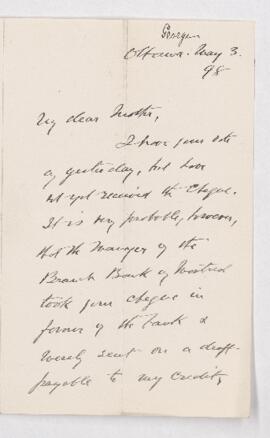 Ottawa. May 3.
98
My dear Mother,
I have your note
of yesterday, but have
not yet received the Cheque.
It is very probable, however,
that the Manager of the
Branch Bank of Montreal
took your cheque in
favour of the bank &
merely sent on a draft
payable to my credit,